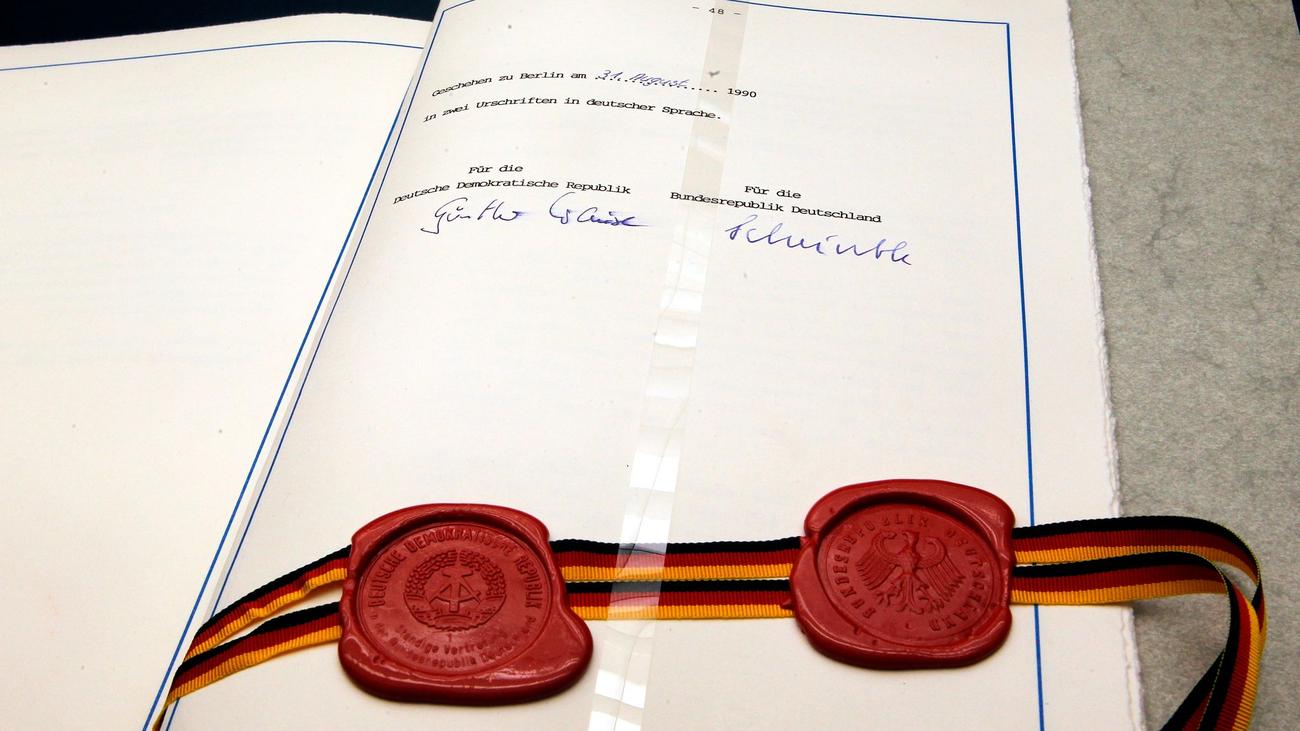 - 48 -
Geschehen zu Berlin am 31. August 1990
in zwei Urschriften in deutscher Sprache.
Für die
Deutsche Demokratische Republik
Günther Krause
Für die
Bundesrepublik Deutschland
Schäuble
DEUTSCHE DEMOKRATISCHE REPUBLIK
Ständige Vertretung
in der Bundesrepublik Deutschland
BUNDESREPUBLIK DEUTSCHLAND